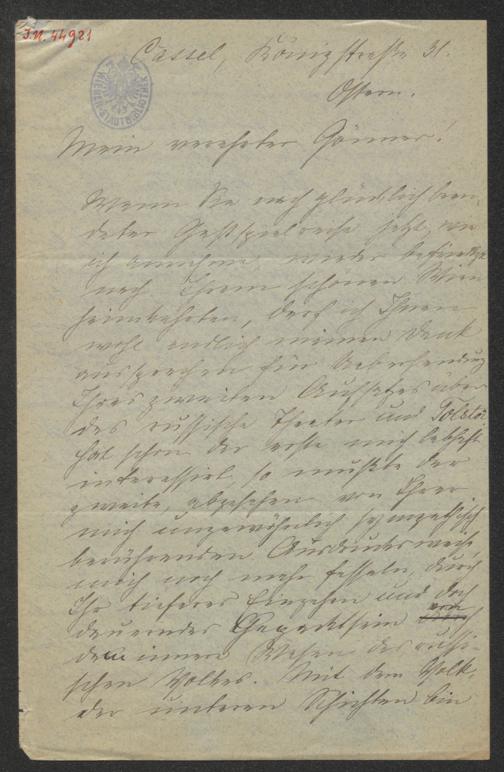 J.N. 44921
Cassel, Königstraße 31.
Ostern.
Mein verehrter Gönner!
Wenn Sie nach glücklich been-
deter Gastspielreise jetzt, wie
ich annehme, wieder
nach Ihrem schönen Wien
heimkehrten, darf ich Ihnen
wohl endlich meinen Dank
aussprechen für Uebersendung
Ihres zweiten Aufsatzes über
das russische Theater und Tolstoi
Hat schon der erste mich lebhaft
interessirt, so mußte der
zweite, abgesehen von Ihrer
mich ungewöhnlich sympathisch
berührenden Ausdrucksweise,
mich noch mehr fesseln, durch
Ihr tieferes Eingehen und doch
dauerndes Gepacktsein von
dem innern Wesen des russi-
schen Volkes. Mit dem Volk,
der unteren Schichten bin